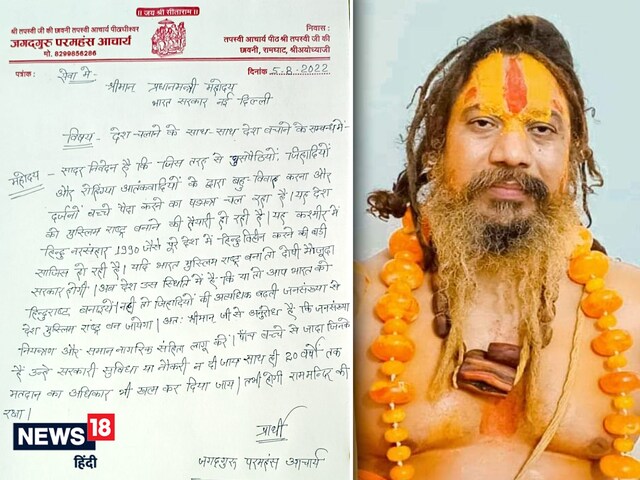 ॥ जय श्री सीताराम ॥
श्री तपस्वी जी की छावनी तपस्वी आचार्य पीठाधीश्वर
जगदगुरु परमहंस आचार्य
मो. 8299858286
निवास :
तपस्वी आचार्य पीठ श्री तपस्वी जी की
छावनी, रामघाट, श्रीअयोध्याजी
पत्रांक :
दिनांक 5-8-2022
सेवा में-
श्रीमान् प्रधानमन्त्री महोदय
भारत सरकार नई दिल्ली
विषय- देश चलाने के साथ-साथ देश बचाने के सम्बन्ध में-
महोदय - सादर निवेदन है कि जिस तरह से घुसपैठियों, जिहादियों
और रोहिंग्या आतंकवादियों के द्वारा बहु-विवाह करना और
दर्जनों बच्चे पैदा करने का षड्यन्त्र चल रहा है। यह देश
को मुस्लिम राष्ट्र बनाने की तैयारी हो रही है। यह कश्मीर में
हिन्दू नरसंहार 1990 जैसे पूरे देश में हिन्दू विहीन करने की बड़ी
साजिस हो रही है। यदि भारत मुस्लिम राष्ट्र बना तो दोषी मौजूदा
सरकार होगी। अब देश उस स्थिति में है कि या तो आप भारत को
हिन्दूराष्ट्र बनायें। नहीं तो जिहादियों की अत्यधिक बढ़ती जनसंख्या से
देश मुस्लिम राष्ट्र बन जायेगा। अतः श्रीमान् जी से अनुरोध है कि जनसंख्या
नियन्त्रण और समान नागरिक संहिता लागू करें। पाँच बच्चे से जादा जिनके
हैं उन्हें सरकारी सुविधा या नौकरी न दी जाय साथ ही 20 वर्षों तक
मतदान का अधिकार भी खत्म कर दिया जाय। तभी होगी राममन्दिर की
रक्षा।
प्रार्थी
जगदगुरु परमहंस आचार्य
NEWS 18
हिंदी